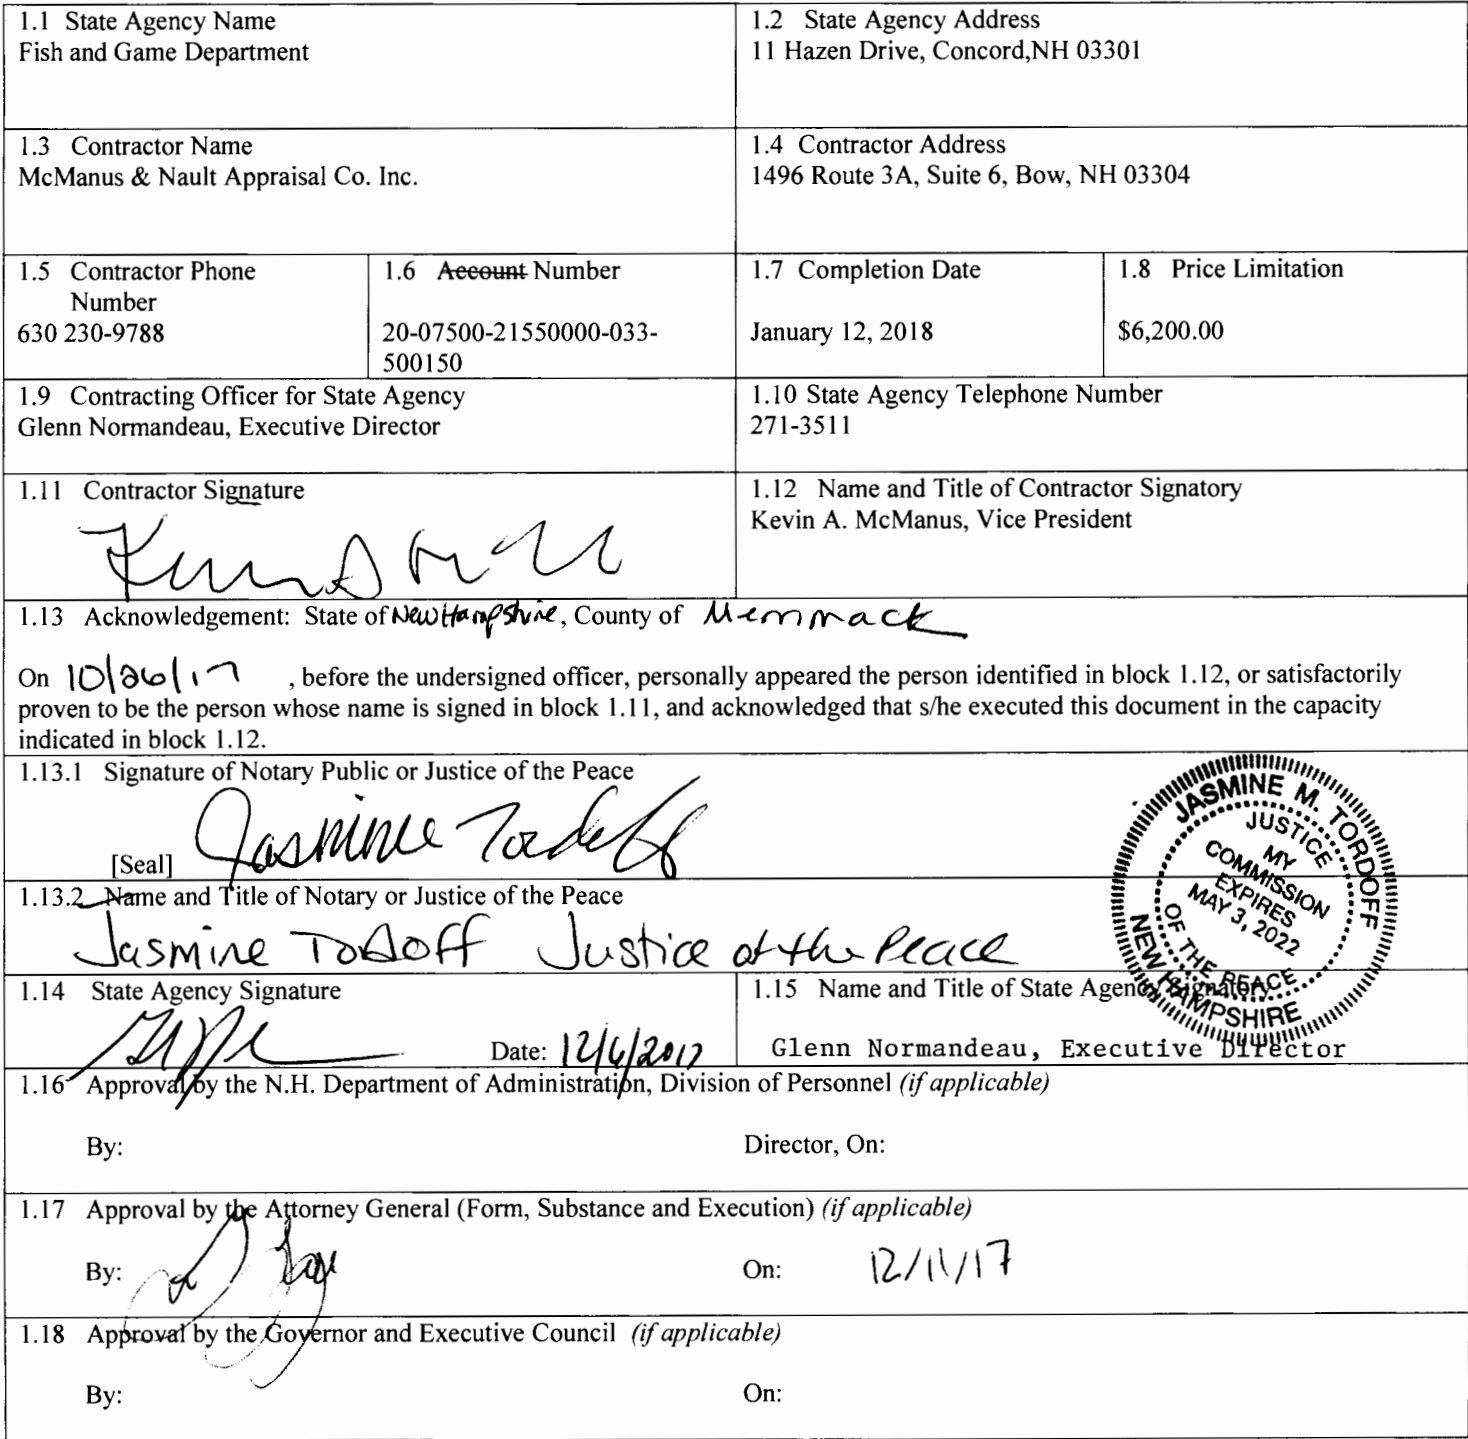 1.1 State Agency Name
Fish and Game Department
1.2 State Agency Address
11 Hazen Drive, Concord,NH 03301
1.3 Contractor Name
McManus & Nault Appraisal Co. Inc.
1.4 Contractor Address
1496 Route 3A, Suite 6, Bow, NH 03304
1.5 Contractor Phone
Number
630 230-9788
1.6 Account Number
20-07500-21550000-033-
500150
1.7 Completion Date
January 12, 2018
1.8 Price Limitation
$6,200.00
1.9 Contracting Officer for State Agency
Glenn Normandeau, Executive Director
1.10 State Agency Telephone Number
271-3511
1.11 Contractor Signature
1.12 Name and Title of Contractor Signatory
Kevin A. McManus, Vice President
1.13 Acknowledgement: State of New Hampshire, County of Merrimack
On 10/26/17 , before the undersigned officer, personally appeared the person identified in block 1.12, or satisfactorily
proven to be the person whose name is signed in block 1.11, and acknowledged that s/he executed this document in the capacity
indicated in block 1.12.
1.13.1 Signature of Notary Public or Justice of the Peace
Jasmine Tordoff
[Seal]
JASMINE M. TORDOFF
JUSTICE
MY
COMMISSION
EXPIRES
MAY 3, 2022
OF THE PEACE
NEW HAMPSHIRE
1.13.2 Name and Title of Notary or Justice of the Peace
Jasmine Tordoff Justice of the Peace
1.14 State Agency Signature
Date: 12/6/2017
1.15 Name and Title of State Agency Signatory
Glenn Normandeau, Executive Director
1.16 Approval by the N.H. Department of Administration, Division of Personnel (if applicable)
By:
Director, On:
1.17 Approval by the Attorney General (Form, Substance and Execution) (if applicable)
By:
On: 12/11/17
1.18 Approval by the Governor and Executive Council (if applicable)
By:
On: